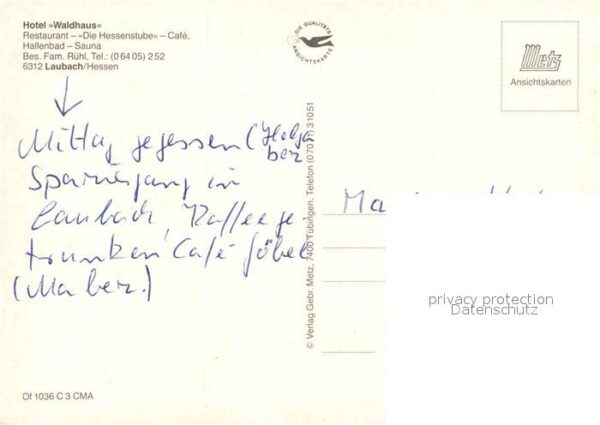 Hotel »Waldhaus«
Restaurant – »Die Hessenstube« – Café,
Hallenbad – Sauna
Bes. Fam. Rühl, Tel.: (0 64 05) 2 52
6312 Laubach/Hessen
DIE QUALITÄTS
ANSICHTSKARTE
Metz
Ansichtskarten
Mittag gegessen (Helga
bez.
Spaziergang in
Laubach, Kaffee ge-
trunken Café Göbel
(Ma bez.)
© Verlag Gebr. Metz, 7400 Tübingen, Telefon (0 70 71) 3 10 51
privacy protection
Datenschutz
Of 1036 C 3 CMA